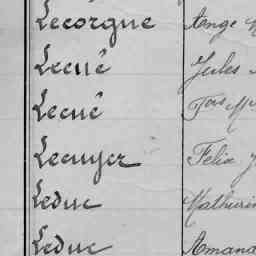 Lecorgne Ange
Lecuê Jules
Lecuê
Lecuyer Felix
Leduc Mathurin
Leduc Amand